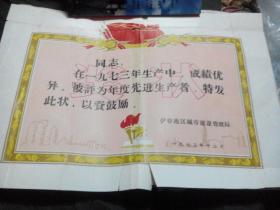 奖状
同志：
在一九七三年生产中，成绩优
异，被評为年度先进生产者，特发
此状，以资鼓励。
伊春地区城市建設管理局
一九七三年十二月